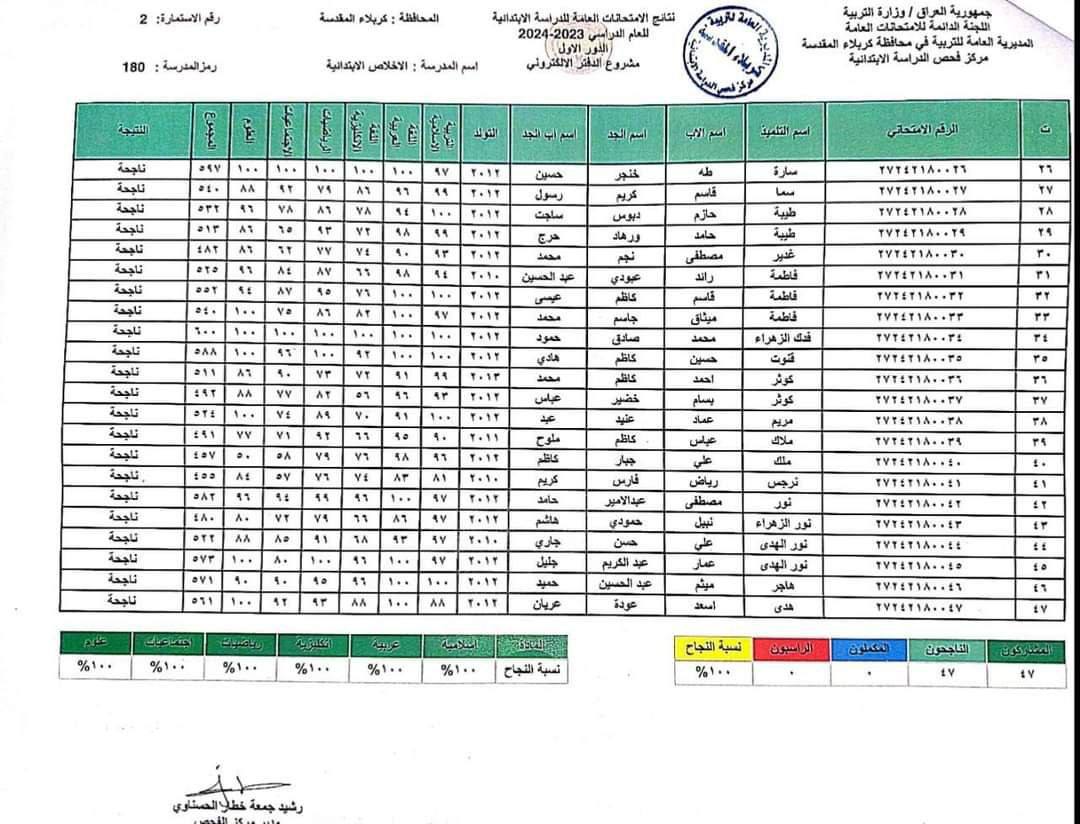 جمهورية العراق / وزارة التربية
اللجنة الدائمة للامتحانات العامة
المديرية العامة للتربية في محافظة كربلاء المقدسة
مركز فحص الدراسة الابتدائية
نتائج الامتحانات العامة للدراسة الابتدائية
للعام الدراسي 2023-2024
الدور الاول
مشروع الدفتر الالكتروني
المحافظة : كربلاء المقدسة
اسم المدرسة : الاخلاص الابتدائية
رقم الاستمارة : 2
رمزالمدرسة : 180
ت الرقم الامتحاني اسم التلميذ اسم الاب اسم الجد اسم اب الجد التولد التربية الاسلامية اللغة العربية اللغة الانكليزية الرياضيات الاجتماعيات العلوم المجموع النتيجة
٢٦ ٢٧٢٤٢١٨٠٠٢٦ سارة طه خنجر حسين ٢٠١٢ ٩٧ ١٠٠ ١٠٠ ١٠٠ ١٠٠ ١٠٠ ٥٩٧ ناجحة
٢٧ ٢٧٢٤٢١٨٠٠٢٧ سما قاسم كريم رسول ٢٠١٢ ٩٩ ٩٦ ٨٦ ٧٩ ٩٢ ٨٨ ٥٤٠ ناجحة
٢٨ ٢٧٢٤٢١٨٠٠٢٨ طيبة حازم دبوس ساجت ٢٠١٢ ١٠٠ ٩٤ ٧٨ ٨٦ ٧٨ ٩٦ ٥٣٢ ناجحة
٢٩ ٢٧٢٤٢١٨٠٠٢٩ طيبة حامد ورهاد حرج ٢٠١٢ ٩٩ ٩٨ ٧٢ ٩٣ ٦٥ ٨٦ ٥١٣ ناجحة
٣٠ ٢٧٢٤٢١٨٠٠٣٠ غدير مصطفى نجم محمد ٢٠١٢ ٩٣ ٩٠ ٧٤ ٧٧ ٦٢ ٨٦ ٤٨٢ ناجحة
٣١ ٢٧٢٤٢١٨٠٠٣١ فاطمة رائد عبودي عبد الحسين ٢٠١٠ ٩٤ ٩٨ ٦٦ ٨٧ ٨٤ ٩٦ ٥٢٥ ناجحة
٣٢ ٢٧٢٤٢١٨٠٠٣٢ فاطمة قاسم كاظم عيسى ٢٠١٢ ١٠٠ ١٠٠ ٧٦ ٩٥ ٨٧ ٩٤ ٥٥٢ ناجحة
٣٣ ٢٧٢٤٢١٨٠٠٣٣ فاطمة ميثاق جاسم محمد ٢٠١٢ ٩٧ ١٠٠ ٨٢ ٨٦ ٧٥ ١٠٠ ٥٤٠ ناجحة
٣٤ ٢٧٢٤٢١٨٠٠٣٤ فدك الزهراء محمد صادق حمود ٢٠١٢ ١٠٠ ١٠٠ ١٠٠ ١٠٠ ١٠٠ ١٠٠ ٦٠٠ ناجحة
٣٥ ٢٧٢٤٢١٨٠٠٣٥ قنوت حسين كاظم هادي ٢٠١٢ ١٠٠ ١٠٠ ٩٢ ١٠٠ ٩٦ ١٠٠ ٥٨٨ ناجحة
٣٦ ٢٧٢٤٢١٨٠٠٣٦ كوثر احمد كاظم محمد ٢٠١٣ ٩٩ ٩١ ٧٢ ٧٣ ٩٠ ٨٦ ٥١١ ناجحة
٣٧ ٢٧٢٤٢١٨٠٠٣٧ كوثر بسام خضير عباس ٢٠١٢ ٩٣ ٩٦ ٥٦ ٨٢ ٧٧ ٨٨ ٤٩٢ ناجحة
٣٨ ٢٧٢٤٢١٨٠٠٣٨ مريم عماد عنيد عبد ٢٠١٢ ١٠٠ ٩١ ٧٠ ٨٩ ٧٤ ١٠٠ ٥٢٤ ناجحة
٣٩ ٢٧٢٤٢١٨٠٠٣٩ ملاك عباس كاظم ملوح ٢٠١١ ٩٠ ٩٥ ٦٦ ٩٢ ٧١ ٧٧ ٤٩١ ناجحة
٤٠ ٢٧٢٤٢١٨٠٠٤٠ ملك علي جبار كاظم ٢٠١٢ ٩٦ ٩٨ ٧٦ ٧٩ ٥٨ ٥٠ ٤٥٧ ناجحة
٤١ ٢٧٢٤٢١٨٠٠٤١ نرجس رياض فارس كريم ٢٠١٠ ٨١ ٨٣ ٧٤ ٧٦ ٥٧ ٨٤ ٤٥٥ ناجحة
٤٢ ٢٧٢٤٢١٨٠٠٤٢ نور مصطفى عبدالامير حامد ٢٠١٢ ٩٧ ١٠٠ ٩٦ ٩٩ ٩٤ ٩٦ ٥٨٢ ناجحة
٤٣ ٢٧٢٤٢١٨٠٠٤٣ نور الزهراء نبيل حمودي هاشم ٢٠١٢ ٩٧ ٨٦ ٦٦ ٧٩ ٧٢ ٨٠ ٤٨٠ ناجحة
٤٤ ٢٧٢٤٢١٨٠٠٤٤ نور الهدى علي حسن جاري ٢٠١٠ ٩٧ ٩٣ ٦٨ ٩١ ٨٥ ٨٨ ٥٢٢ ناجحة
٤٥ ٢٧٢٤٢١٨٠٠٤٥ نور الهدى عمار عبد الكريم جليل ٢٠١٢ ٩٧ ١٠٠ ٩٦ ١٠٠ ٨٠ ١٠٠ ٥٧٣ ناجحة
٤٦ ٢٧٢٤٢١٨٠٠٤٦ هاجر ميثم عبد الحسين حميد ٢٠١٢ ١٠٠ ١٠٠ ٩٦ ٩٥ ٩٠ ٩٠ ٥٧١ ناجحة
٤٧ ٢٧٢٤٢١٨٠٠٤٧ هدى اسعد عودة عريان ٢٠١٢ ٨٨ ١٠٠ ٨٨ ٩٣ ٩٢ ١٠٠ ٥٦١ ناجحة
المشتركون الناجحون المكملون الراسبون نسبة النجاح
٤٧ ٤٧ ٠ ٠ ١٠٠%
المادة اسلامية عربية انكليزية رياضيات اجتماعيات علوم
نسبة النجاح ١٠٠% ١٠٠% ١٠٠% ١٠٠% ١٠٠% ١٠٠%
رشيد جمعة خطار الحسناوي
مدير مركز الفحص